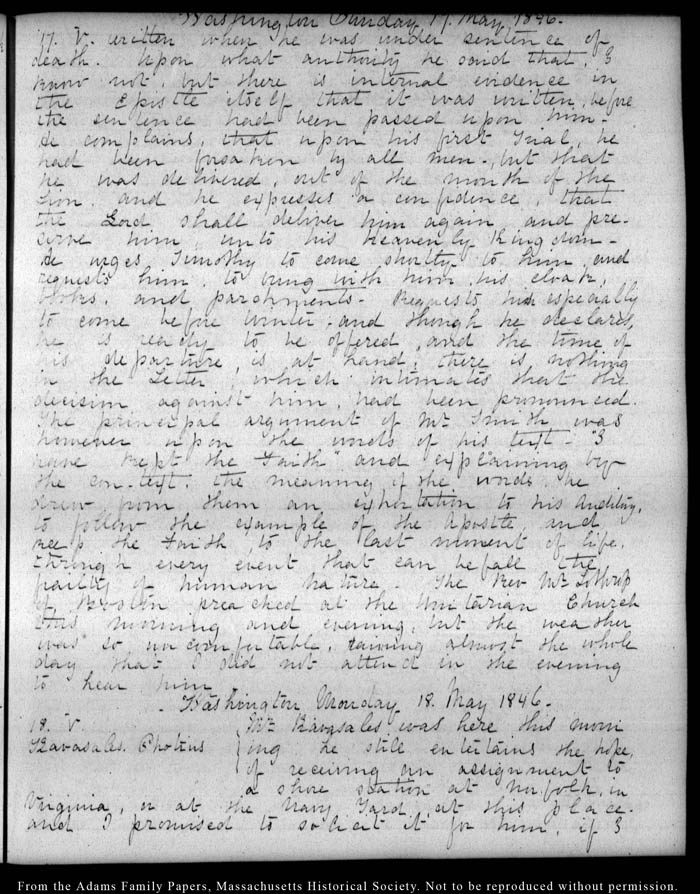 Washington Sunday 17. May 1846.
17. V. written when he was under sentence of
death. Upon what authority he said that, I
know not, but there is internal evidence in
the Epistle itself that it was written, before
the sentence had been passed upon him-
He complains, that upon his first Trial, he
had been forsaken by all men- but that
he was delivered, out of the mouth of the
Lion. and he expresses a confidence, that
the Lord shall deliver him again and pre-
serve him, unto his Heavenly Kingdom-
He urges Timothy to come shortly to him, and
requests him, to bring with him, his cloak,
books, and parchments- Requests him especially
to come before Winter, and though he declares,
he is ready to be offered, and the time of
his departure, is at hand, there is nothing
in the Letter, which intimates that the
decision against him, had been pronounced.
The principal argument of Mr Smith was
however upon the words of his text- "I
have kept the Faith" and explaining by
the con-text, the meaning of the words, he
drew from them an exhortation to his Auditory,
to follow the example of the Apostle, and
keep the Faith to the last moment of life,
through every event that can befall the
frailty of human Nature. The Rev. Mr Lothrop
of Boston preached at the Unitarian Church
this morning and evening, but the weather
was so uncomfortable, raining almost the whole
day that I did not attend in the evening
to hear him.
Washington Monday 18. May 1846.
18. V
Kavasales. Photius
Mr Kavasales was here this morn
ing he still entertains the hope,
of receiving an assignment to
a shore station at Norfolk, in
Virginia, or at the Navy Yard, at this place.
and I promised to solicit it for him, if I
From the Adams Family Papers, Massachusetts Historical Society. Not to be reproduced without permission.